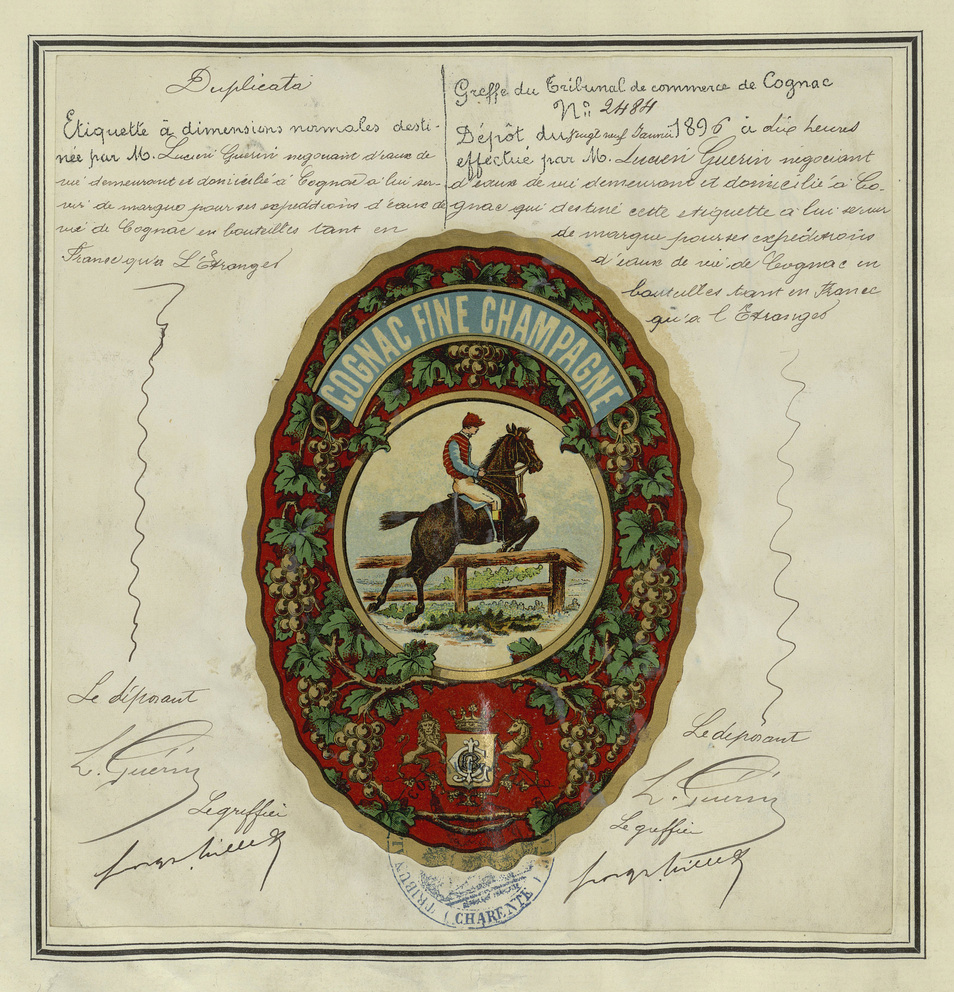 Duplicata
Etiquette à dimensions normales desti-
née par M. Lucien Guerin negociant d'eaux de
vie demeurant et domicilié à Cognac a lui ser-
vir de marque pour ses expeditions d'eaux de
vie de Cognac en bouteilles tant en
France qu'a L'Étranger
Le déposant
L. Guerin
Le greffier
Greffe du Tribunal de commerce de Cognac
N° 2484
Dépôt du vingt neuf Janvier 1896 à dix heures
effectué par M. Lucien Guerin négociant
d'eaux de vie demeurant et domicilié à Co-
gnac qui destine cette etiquette a lui servir
de marque pour ses expéditions
d'eaux de vie de Cognac en
bouteilles tant en France
qu'a l'Etranger
Le déposant
L. Guerin
Le greffier
COGNAC FINE CHAMPAGNE
TRIBU
CHARENTE